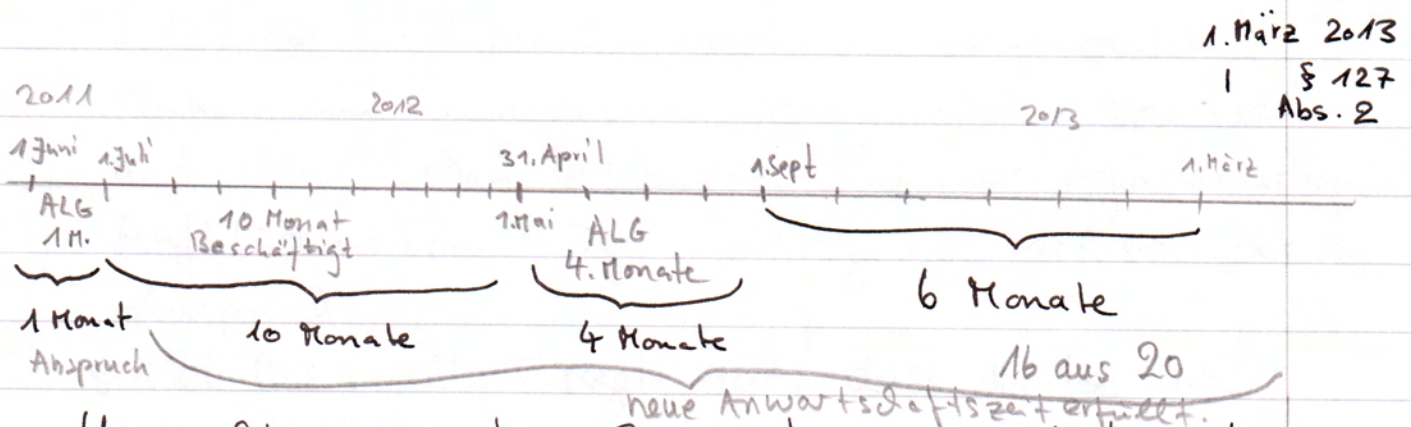 1. März 2013
| § 127
Abs. 2
2011 2012 2013
1 Juni 1. Juli 31. April 1. Sept 1. März
ALG 10 Monat 1. Mai ALG
1 M. Beschäftigt 4. Monate
6 Monate
1 Monat 10 Monate 4 Monate
Anspruch 16 aus 20
neue Anwartschaftszeit erfüllt.